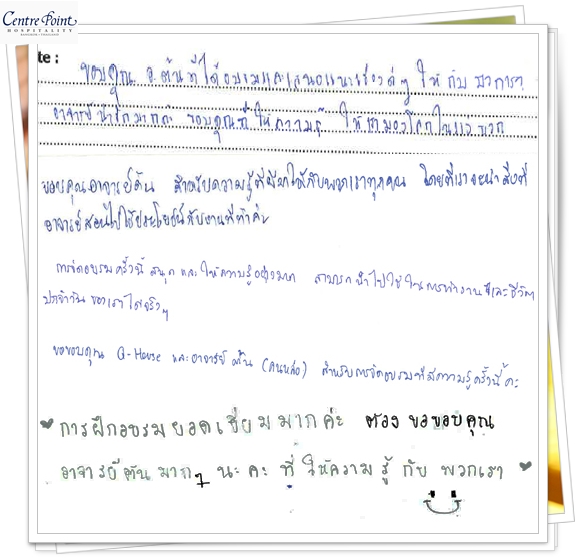 Centre Point
HOSPITALITY
te :
ขอบคุณ อ.ต้นที่ได้อบรมและเสนอแนะเรื่องดีๆ ให้กับ
อาจารย์น่ารักมากค่ะ ขอบคุณที่ให้ความรู้ ให้มองโลกในแง่บวก
ขอบคุณอาจารย์ต้น สำหรับความรู้ที่มีมาให้กับพวกเราทุกคน โดยที่เราจะนำสิ่งที่
อาจารย์สอนไปใช้ประโยชน์กับงานที่ทำค่ะ
การจัดอบรมครั้งนี้ สนุก และให้ความรู้อย่างมาก สามารถนำไปใช้ในการทำงานและชีวิต
ประจำวันของเราได้จริงๆ
ขอขอบคุณ G-House และอาจารย์ต้น (คนหล่อ) สำหรับการจัดอบรมที่ให้ความรู้ครั้งนี้ค่ะ
การฝึกอบรมยอดเยี่ยมมากค่ะ ต้องขอขอบคุณ
อาจารย์ต้นมากๆ นะคะ ที่ให้ความรู้กับพวกเรา